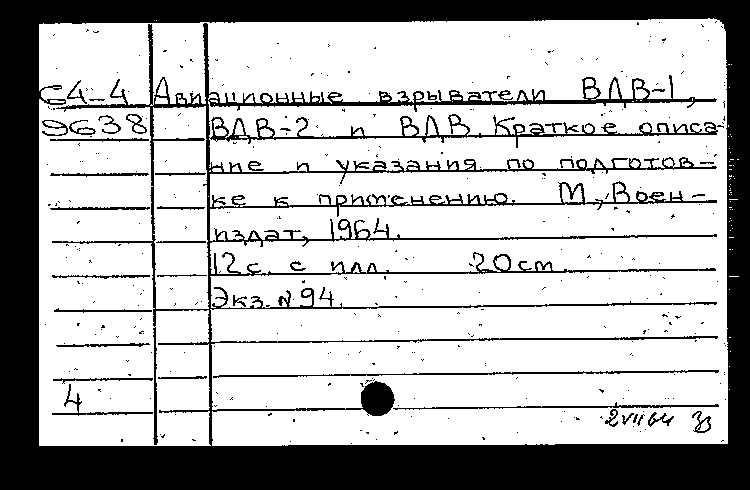 64-4 Авиационные взрыватели ВДВ-1,
9638 ВДВ-2 и ВДВ. Краткое описа-
ние и указания по подготов-
ке к применению. М., Воен-
издат, 1964.
12с. с илл. 20см.
Экз. N94.
4
2 VII 64